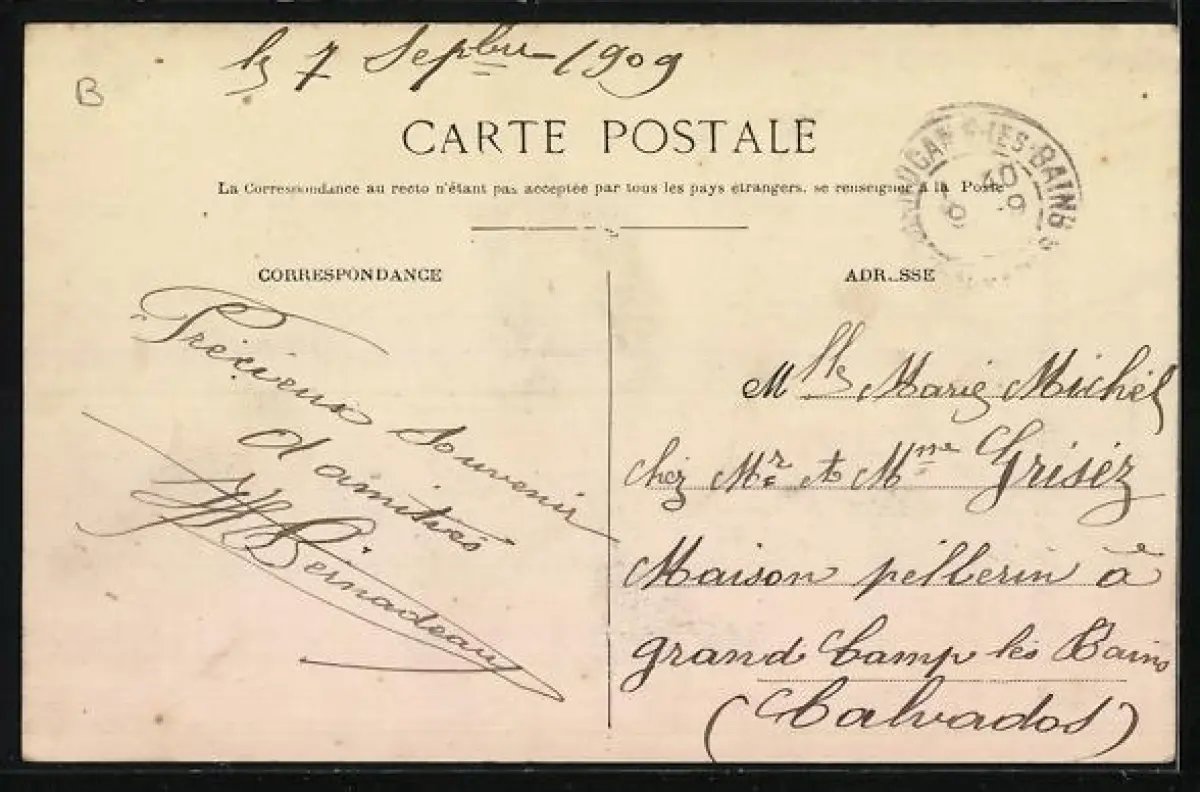 le 7 Sepbre 1909
B
CARTE POSTALE
La Correspondance au recto n'étant pas acceptée par tous les pays étrangers, se renseigner à la Poste
LES-BAINS
CORRESPONDANCE
ADRESSE
Précieux souvenir
d'amitiés
M Bernadeau
Mlle Marie Michel
chez Mr et Mme Grisez
Maison pellerin à
grand Camp les Bains
(Calvados)